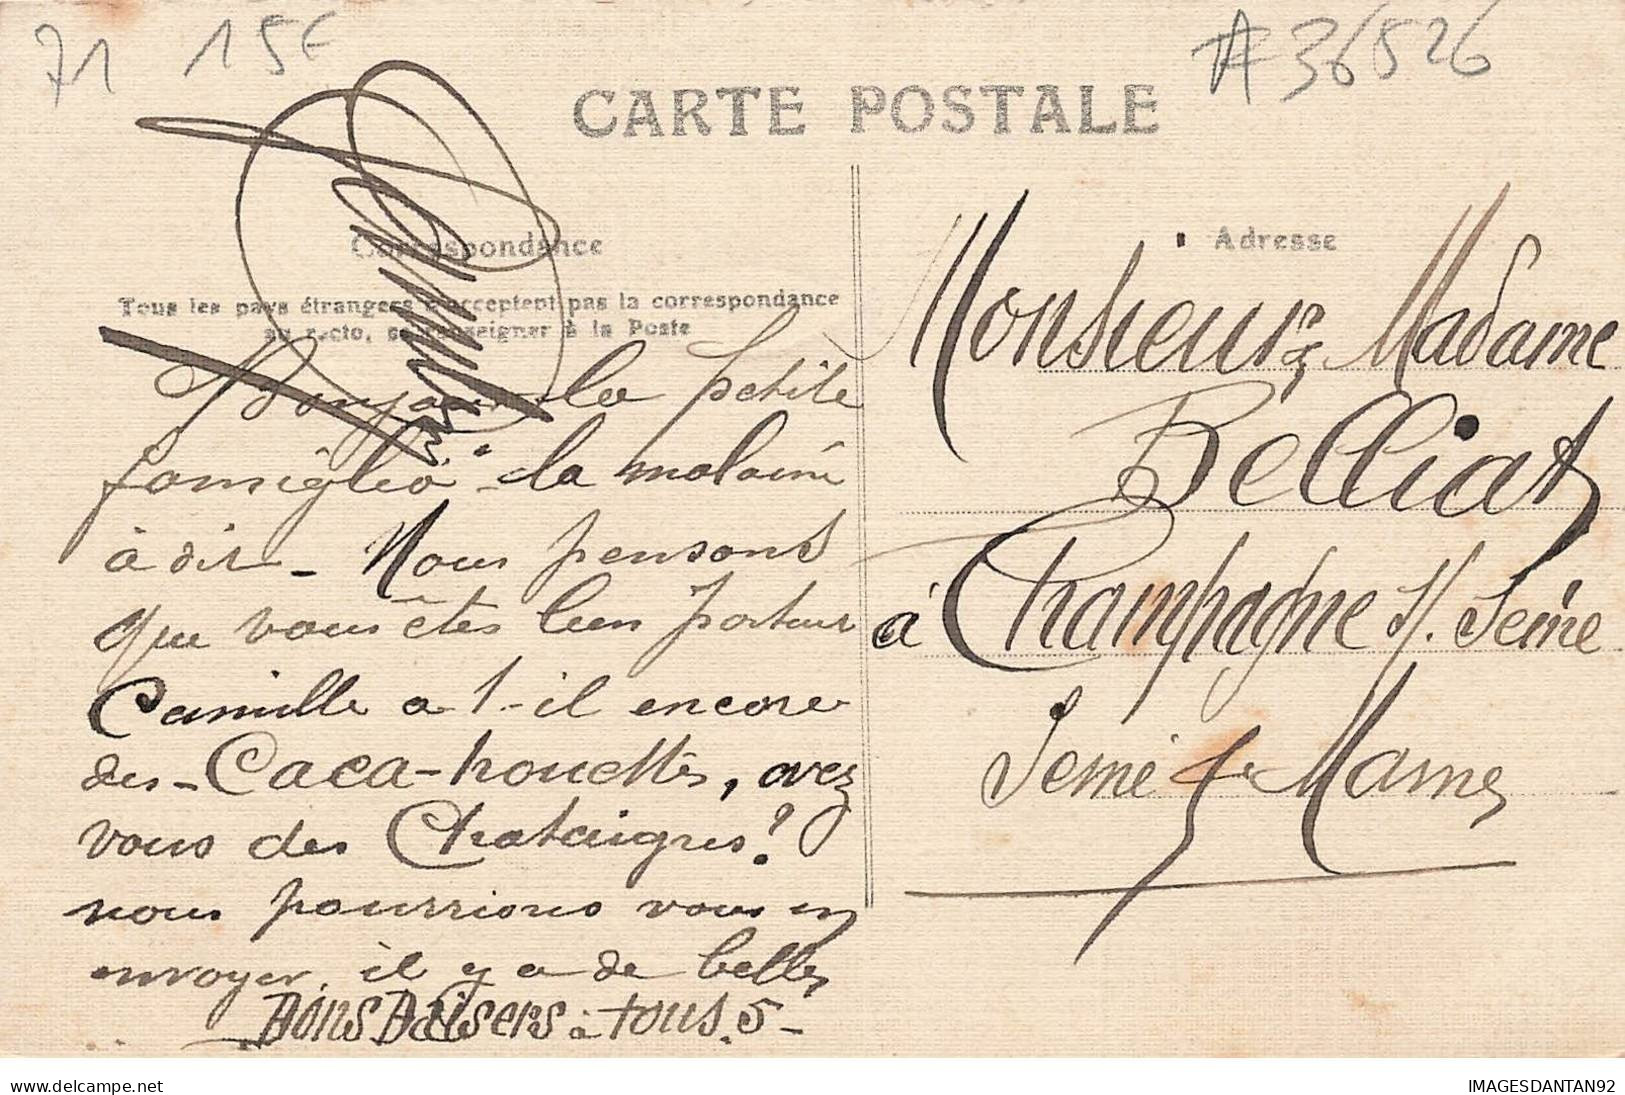 71 15€
#36526
CARTE POSTALE
Correspondance
Tous les pays étrangers n'acceptent pas la correspondance
au recto, se renseigner à la Poste
Adresse
Bonjour la petite
famiglio - la
à dir - Nous pensons
que vous êtes bien portant
Camille a t-il encore
des - Caca-houettes, avez
vous des Chataignes?
nous pourrions vous en
envoyer, il y a de belles
Bons Baisers à tous. 5 -
Monsieur & Madame
Belliat
à Champagne s/. Seine
Seine & Marne
delcampe.net
IMAGESDANTAN92